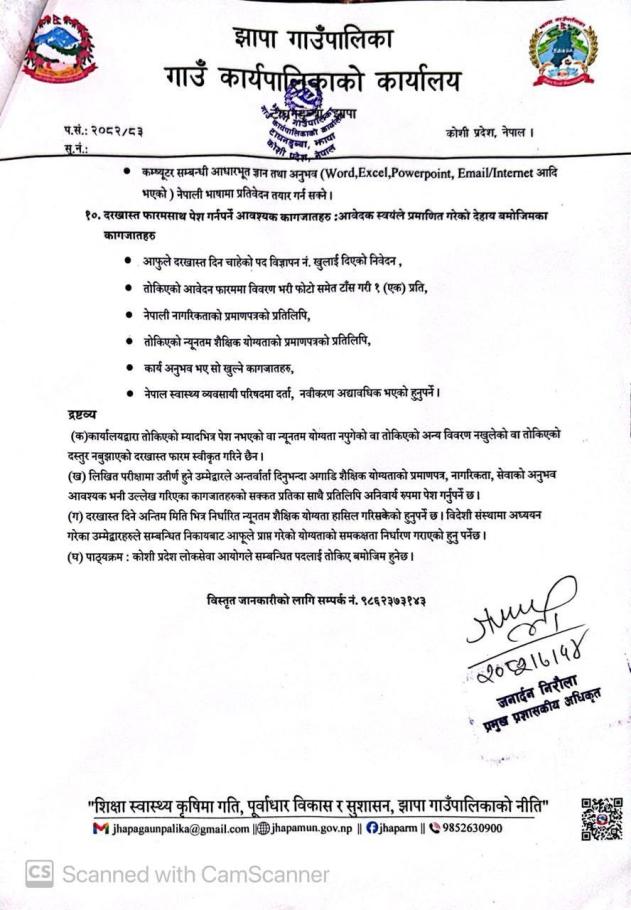 झापा गाउँपालिका
गाउँ कार्यपालिकाको कार्यालय
टाघनडुब्बा, झापा
प.सं.: २०८२/८३
कोशी प्रदेश, नेपाल ।
सु.नं.:
• कम्प्यूटर सम्बन्धी आधारभूत ज्ञान तथा अनुभव (Word,Excel,Powerpoint, Email/Internet आदि
भएको ) नेपाली भाषामा प्रतिवेदन तयार गर्न सक्ने ।
१०. दरखास्त फारमसाथ पेश गर्नपर्ने आवश्यक कागजातहरु :आवेदक स्वयंले प्रमाणित गरेको देहाय बमोजिमका
कागजातहरु
• आफुले दरखास्त दिन चाहेको पद विज्ञापन नं. खुलाई दिएको निवेदन ,
• तोकिएको आवेदन फारममा विवरण भरी फोटो समेत टाँस गरी १ (एक) प्रति,
• नेपाली नागरिकताको प्रमाणपत्रको प्रतिलिपि,
• तोकिएको न्यूनतम शैक्षिक योग्यताको प्रमाणपत्रको प्रतिलिपि,
• कार्य अनुभव भए सो खुल्ने कागजातहरु,
• नेपाल स्वास्थ्य व्यवसायी परिषदमा दर्ता, नवीकरण अद्यावधिक भएको हुनुपर्ने ।
द्रष्टव्य
(क)कार्यालयद्वारा तोकिएको म्यादभित्र पेश नभएको वा न्यूनतम योग्यता नपुगेको वा तोकिएको अन्य विवरण नखुलेको वा तोकिएको
दस्तुर नबुझाएको दरखास्त फारम स्वीकृत गरिने छैन ।
(ख) लिखित परीक्षामा उतीर्ण हुने उम्मेद्वारले अन्तर्वार्ता दिनुभन्दा अगाडि शैक्षिक योग्यताको प्रमाणपत्र, नागरिकता, सेवाको अनुभव
आवश्यक भनी उल्लेख गरिएका कागजातहरुको सक्कल प्रतिका साथै प्रतिलिपि अनिवार्य रुपमा पेश गर्नुपर्ने छ ।
(ग) दरखास्त दिने अन्तिम मिति भित्र निर्धारित न्यूनतम शैक्षिक योग्यता हासिल गरिसकेको हुनुपर्ने छ । विदेशी संस्थामा अध्ययन
गरेका उम्मेद्वारहरुले सम्बन्धित निकायबाट आफूले प्राप्त गरेको योग्यताको समकक्षता निर्धारण गराएको हुनु पर्नेछ ।
(घ) पाठ्यक्रम : कोशी प्रदेश लोकसेवा आयोगले सम्बन्धित पदलाई तोकिए बमोजिम हुनेछ ।
विस्तृत जानकारीको लागि सम्पर्क नं. ९८६२३७३१४३
जनार्दन निरौला
प्रमुख प्रशासकीय अधिकृत
"शिक्षा स्वास्थ्य कृषिमा गति, पूर्वाधार विकास र सुशासन, झापा गाउँपालिकाको नीति"
jhapagaunpalika@gmail.com || jhapamun.gov.np || jhaparm || 9852630900
CS Scanned with CamScanner